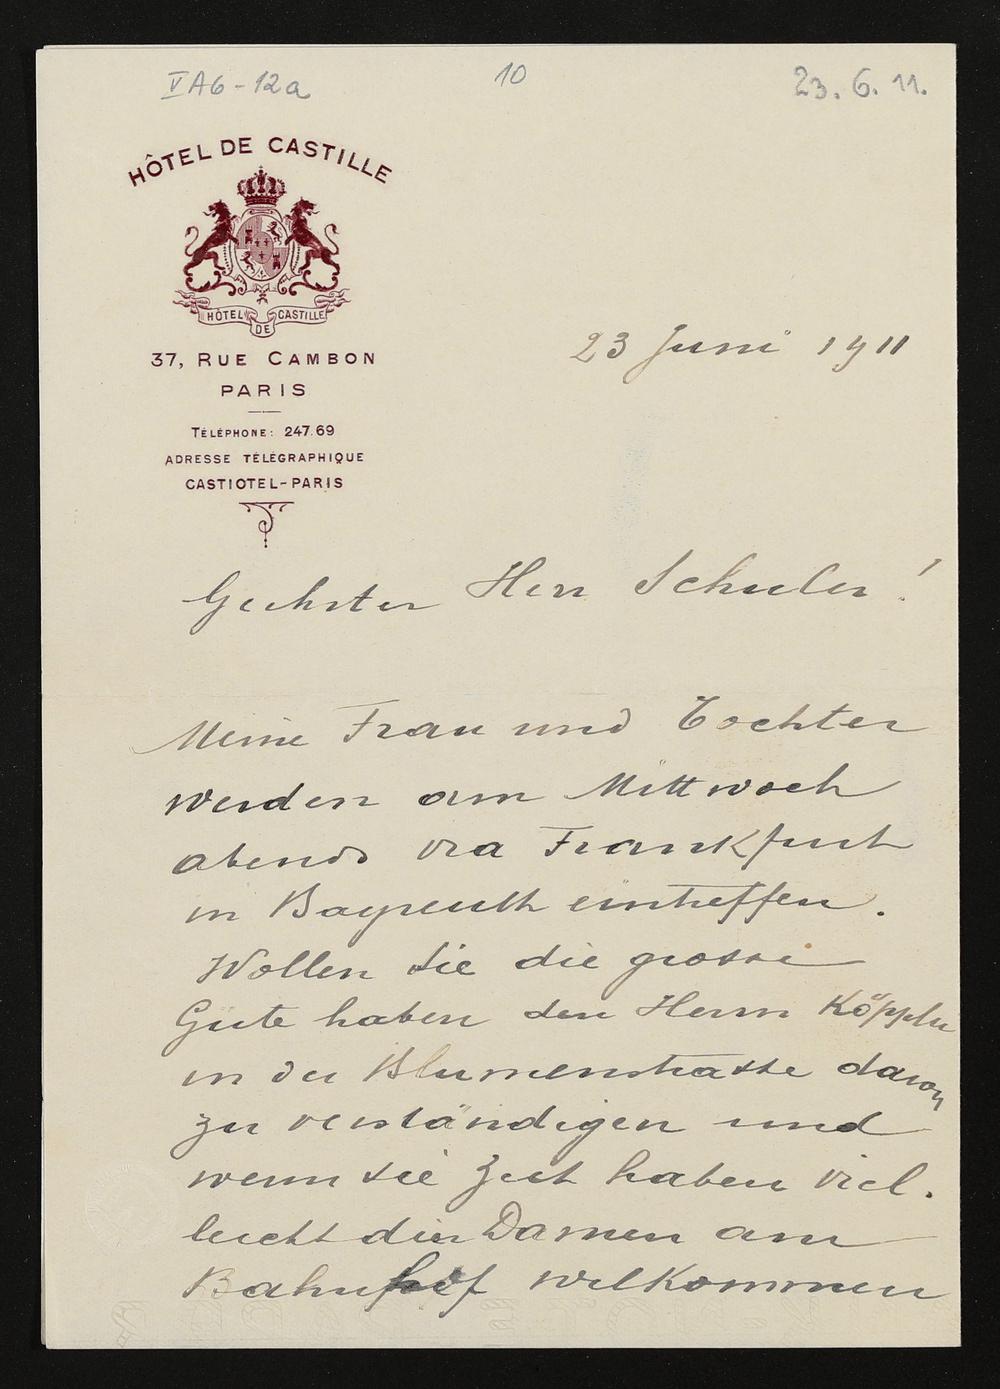 VA6-12a
10
23. 6. 11.
HÔTEL DE CASTILLE
HÔTEL DE CASTILLE
37, RUE CAMBON
PARIS
TÉLÉPHONE: 247.69
ADRESSE TÉLÉGRAPHIQUE
CASTIOTEL-PARIS
23 Juni 1911
Geehrter Herr Schuler!
Meine Frau und Tochter
werden am Mittwoch
abends via Frankfurt
in Bayreuth eintreffen.
Wollen Sie die grosse
Güte haben den Herrn Köppln
in der Blumenstrasse davon
zu verständigen und
wenn sie Zeit haben viel.
leicht die Damen am
Bahnhof willkommen